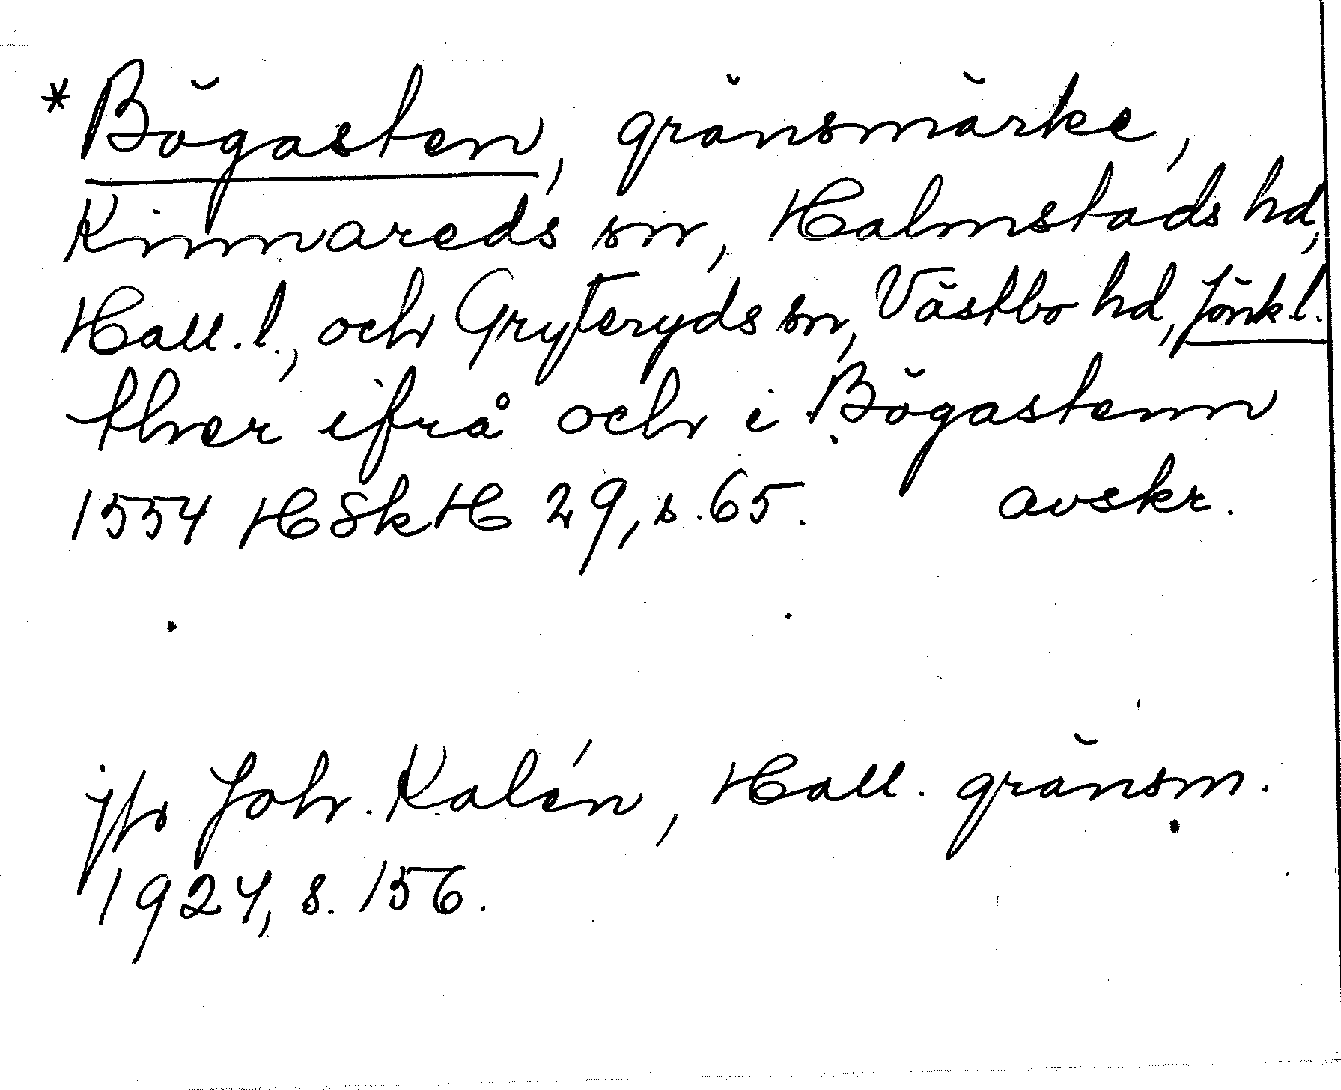 *Bögasten, gränsmärke,
Kinnareds sn, Halmstads hd,
Hall. l., och Gryteryds sn, Västbo hd, Jönk l.
ther ifrå och i Bögastenn
1554 HSkH 29, s. 65. avskr.
jfr Joh. Kalén, Hall. gränsm.
1924, s. 156.